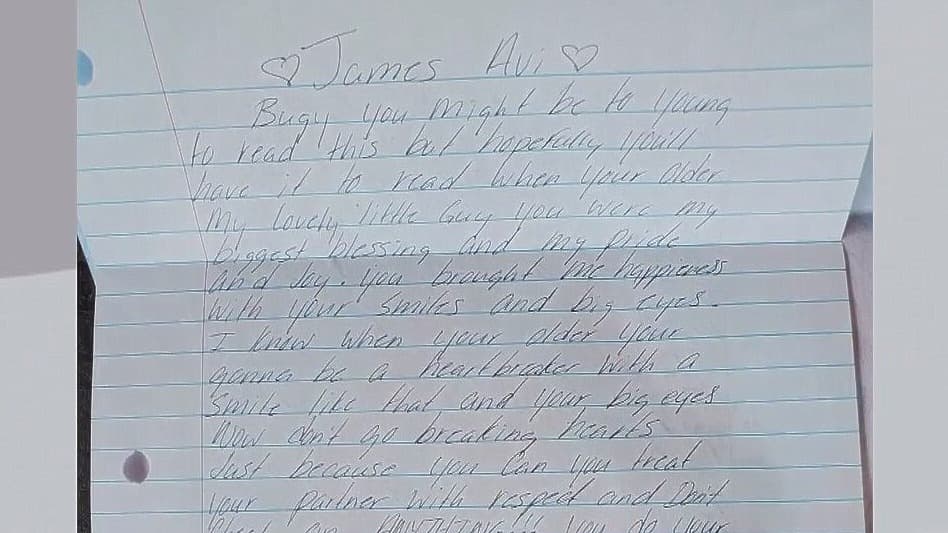 ♡ James Avi ♡
Bugy you might be to young
to read this but hopefully you'll
have it to read when your older
My lovely little Guy you were my
biggest blessing and my pride
and Joy. you brought me happieness
with your smiles and big eyes.
I know when your older your
gonna be a heartbreaker with a
smile like that and your big eyes
Now don't go breaking hearts
Just because you can you treat
your partner with respect and Don't
ANYTHING!! you do your